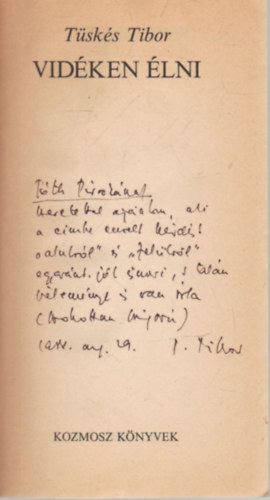 Tüskés Tibor
VIDÉKEN ÉLNI
Tóth Piroskának
szeretettel ajánlom, aki
a címbe emelt kérdést
„alulról” és „felülről”
egyaránt jól ismeri, s talán
véleménye is van róla
(szokottan szigorú)
1988. aug. 29. T. Tibor
KOZMOSZ KÖNYVEK